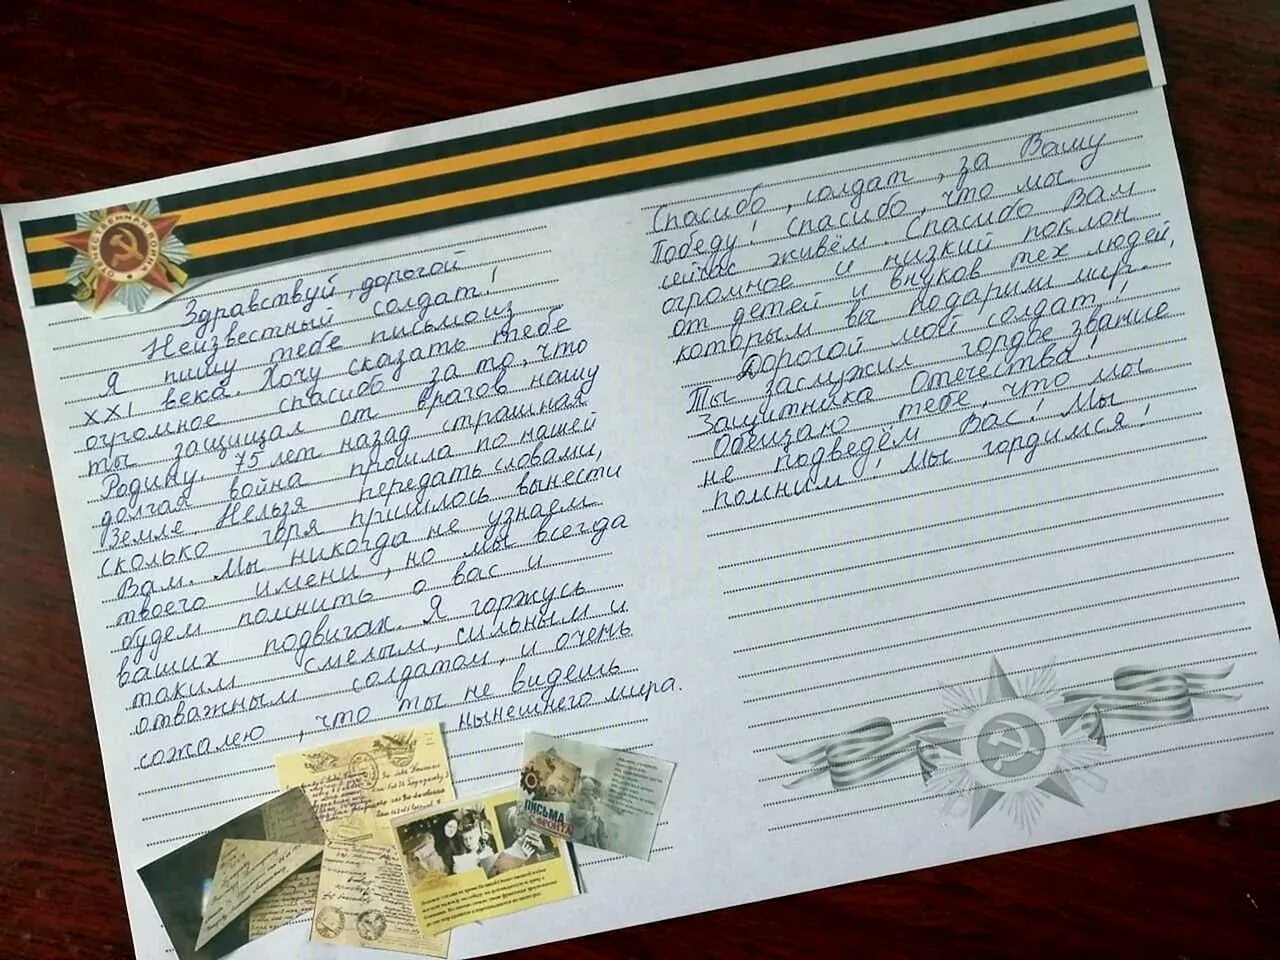 Здравствуй, дорогой
Неизвестный солдат!
Я пишу тебе письмо из
XXI века. Хочу сказать тебе
огромное спасибо за то, что
ты защищал от врагов нашу
Родину. 75 лет назад страшная
долгая война прошла по нашей
Земле. Нельзя передать словами,
сколько горя пришлось вынести
Вам. Мы никогда не узнаем
твоего имени, но мы всегда
будем помнить о вас и
ваших подвигах. Я горжусь
таким смелым, сильным и
отважным солдатом, и очень
сожалею, что ты не видешь
нынешнего мира.
Спасибо, солдат, за Вашу
Победу! Спасибо, что мы
сейчас живём. Спасибо Вам
огромное и низкий поклон
от детей и внуков тех людей,
которым вы подарили мир.
Дорогой мой солдат!
Ты заслужил гордое звание
Защитника Отечества!
Обещаю тебе, что мы
не подведём Вас! Мы
помним! Мы гордимся!
ПИСЬМА
С ФРОНТА